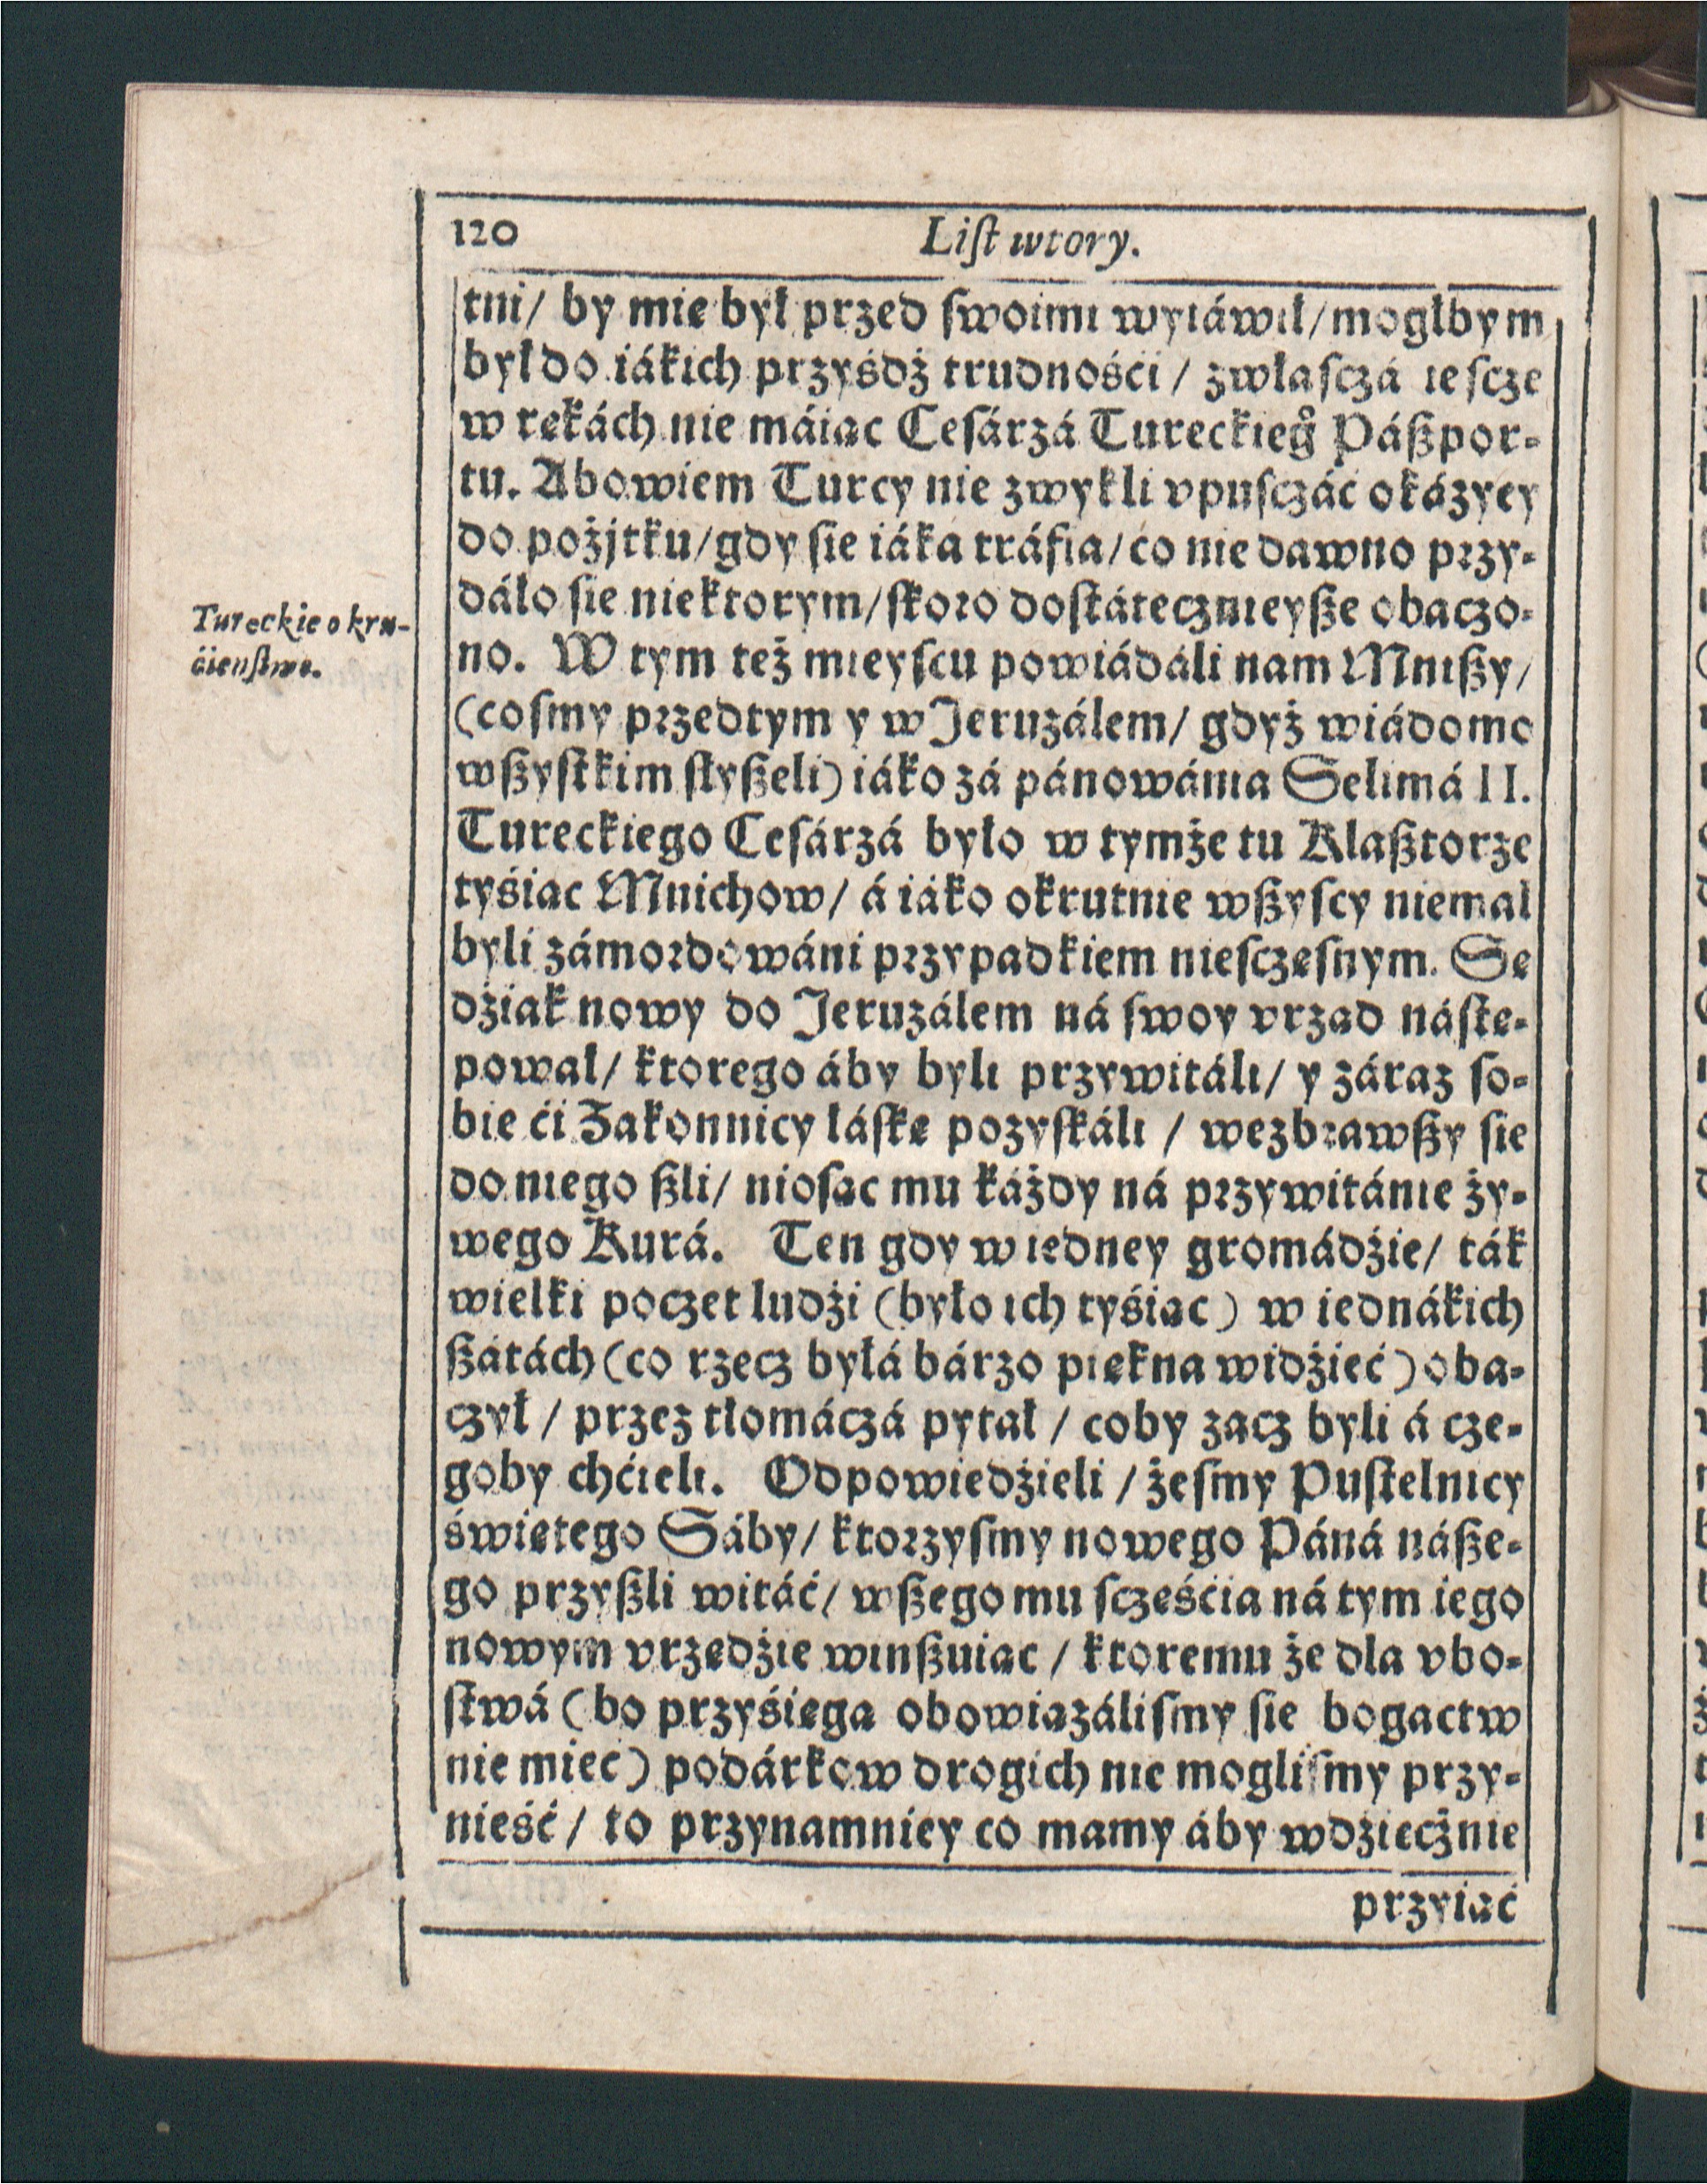 120
Liſt wtory.
tni/ by mie był przed ſwoimi wyiáwił/mogłbym
był do iákich przyśdź trudnośći / zwłaſczá ieſcze
w rękách nie máiąc Ceſárzá Tureckieg̊ Páßpor-
tu. Abowiem Turcy nie zwykli vpuſczáć okázyey
do pożjtku/gdy ſie iáka tráfia/co nie dawno przy-
dáło ſie niektorym/ſkoro doſtátecznieyße obaczo-
no. W tym też mieyſcu powiádáli nam Mnißy/
(coſmy przedtym y w Jeruzálem/ gdyż wiádomo
wßyſtkim ſłyßeli) iáko zá pánowánia Selimá II.
Tureckiego Ceſárzá było w tymże tu Klaßtorze
tyśiąc Mnichow/ á iáko okrutnie wßyſcy niemal
byli zámordowáni przypadkiem nieſczęſnym. Sę
dźiak nowy do Jeruzálem ná ſwoy vrząd náſtę-
pował/ ktorego áby byli przywitáli/ y záraz ſo-
bie ći Zakonnicy łáſkę pozyſkáli / wezbrawßy ſie
do niego ßli/ niosąc mu káżdy ná przywitánie ży-
wego Kurá. Ten gdy w iedney gromádźie/ ták
wielki poczet ludźi (było ich tyśiąc) w iednákich
ßátách (co rzecz byłá bárzo piękna widźieć) oba-
czył / przez tłomáczá pytał / coby zacz byli á cze-
goby chćieli. Odpowiedźieli / żeſmy Puſtelnicy
świętego Sáby/ ktorzyſmy nowego Páná náße-
go przyßli witáć/ wßego mu ſczęśćia ná tym iego
nowym vrzędźie winßuiąc / ktoremu że dla vbo-
ſtwá (bo przyśięgą obowiązáliſmy ſie bogactw
nie mieć) podárkow drogich nie mogliſmy przy-
nieść / to przynamniey co mamy áby wdźięcżnie
przyiąć
Tureckie okru-
ćieńſtwo.